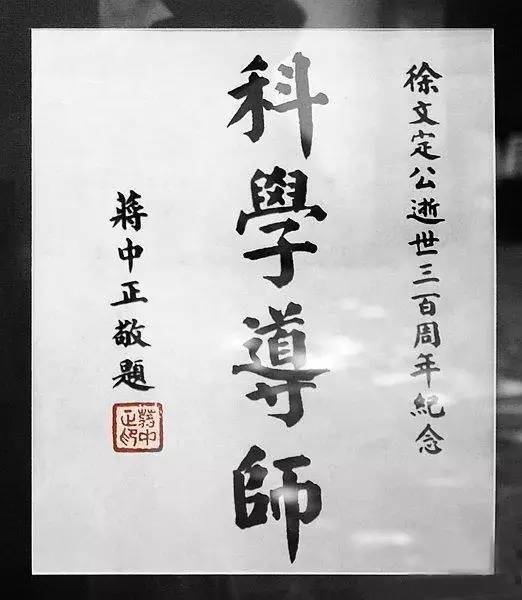 徐文定公逝世三百周年紀念
科學導師
蔣中正敬題
蔣中正印